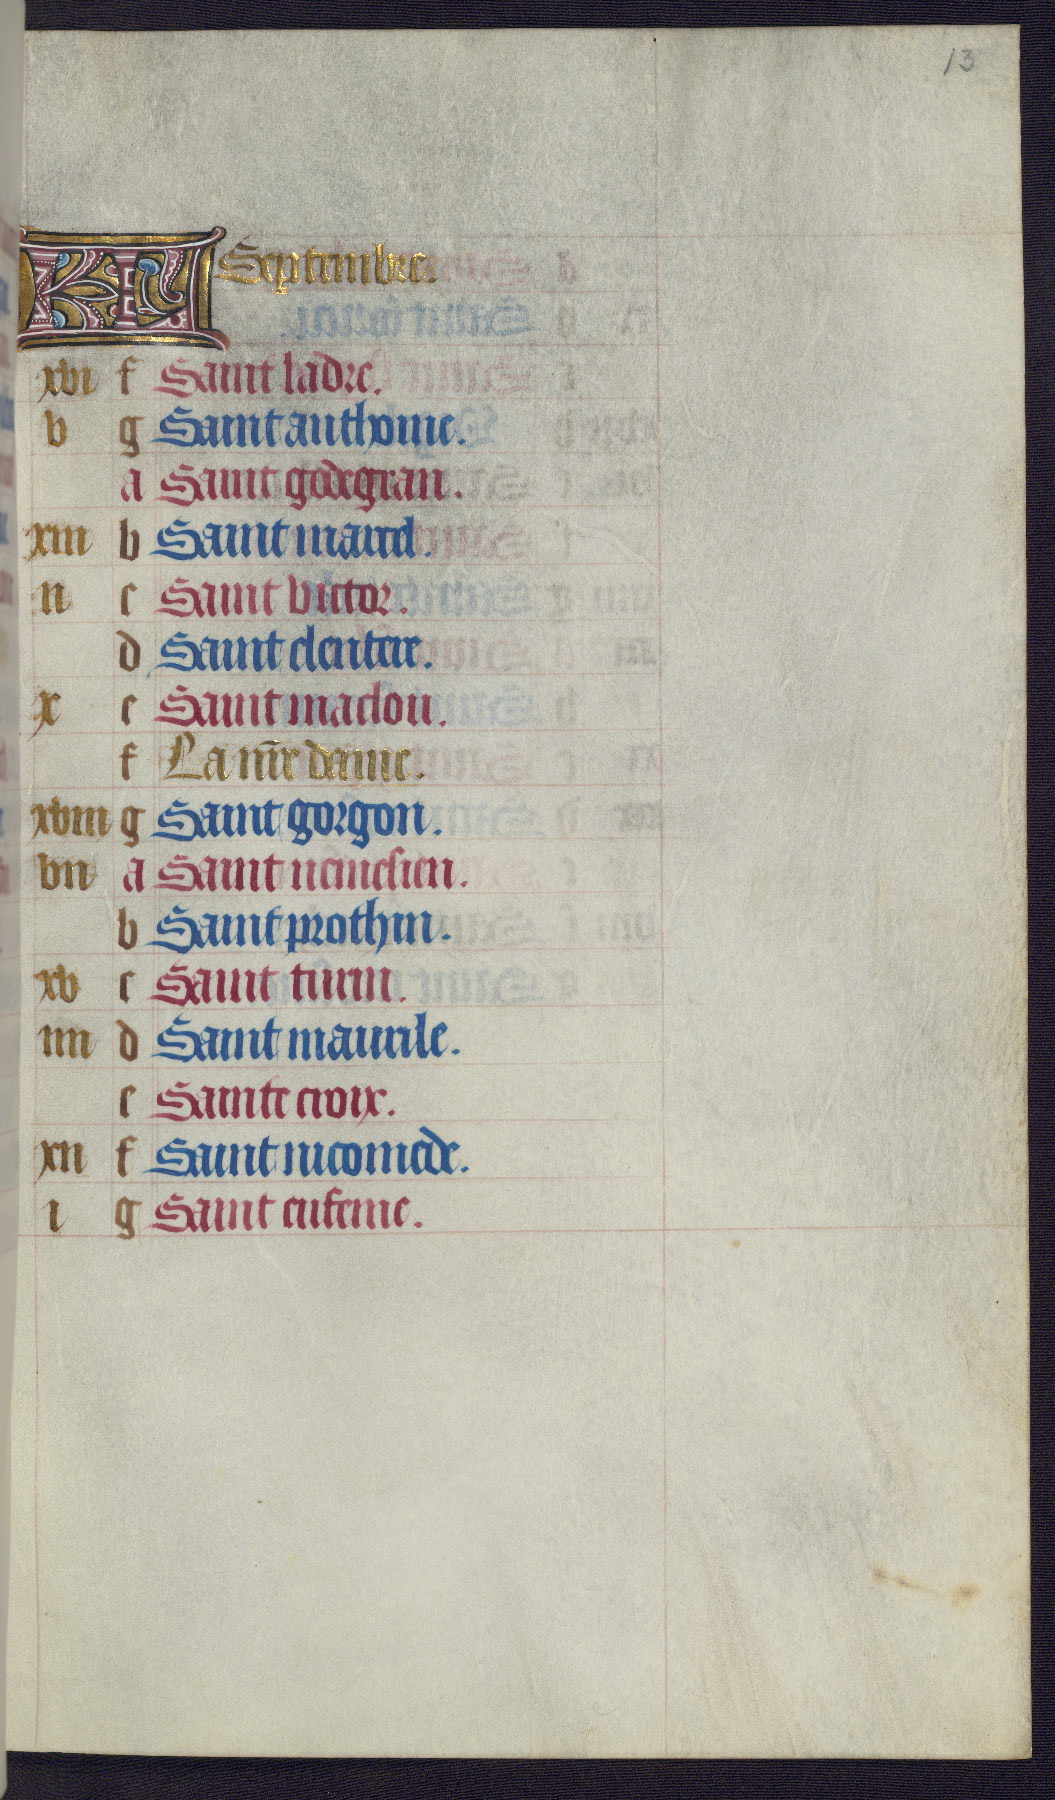 13
KL Septembre.
xvi f Saint ladre.
v g Saint anthoine.
a Saint godegran.
xiii b Saint marcel.
ii c Saint victor.
d Saint eleutere.
x e Saint maclou.
f La nr̄e dame.
xviii g Saint gorgon.
vii a Saint nemesien.
b Saint prothin.
xv c Saint turin.
iiii d Saint maurile.
e Sainte croix.
xii f Saint nicomede.
i g Saint eufeme.